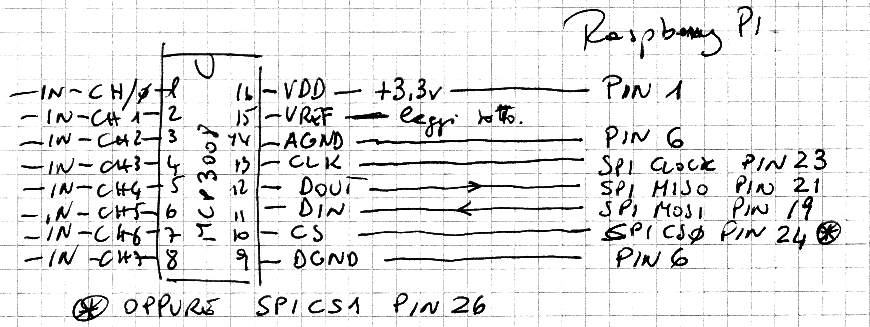 Raspberry PI
IN-CH/0 1 16 VDD +3,3v PIN 1
IN-CH1 2 15 VREF leggi sotto.
IN-CH2 3 14 AGND PIN 6
IN-CH3 4 13 CLK SPI CLOCK PIN 23
IN-CH4 5 12 DOUT SPI MISO PIN 21
IN-CH5 6 11 DIN SPI MOSI PIN 19
IN-CH6 7 10 CS SPI CS0 PIN 24 *
IN-CH7 8 9 DGND PIN 6
MCP3008
* OPPURE SPI CS1 PIN 26